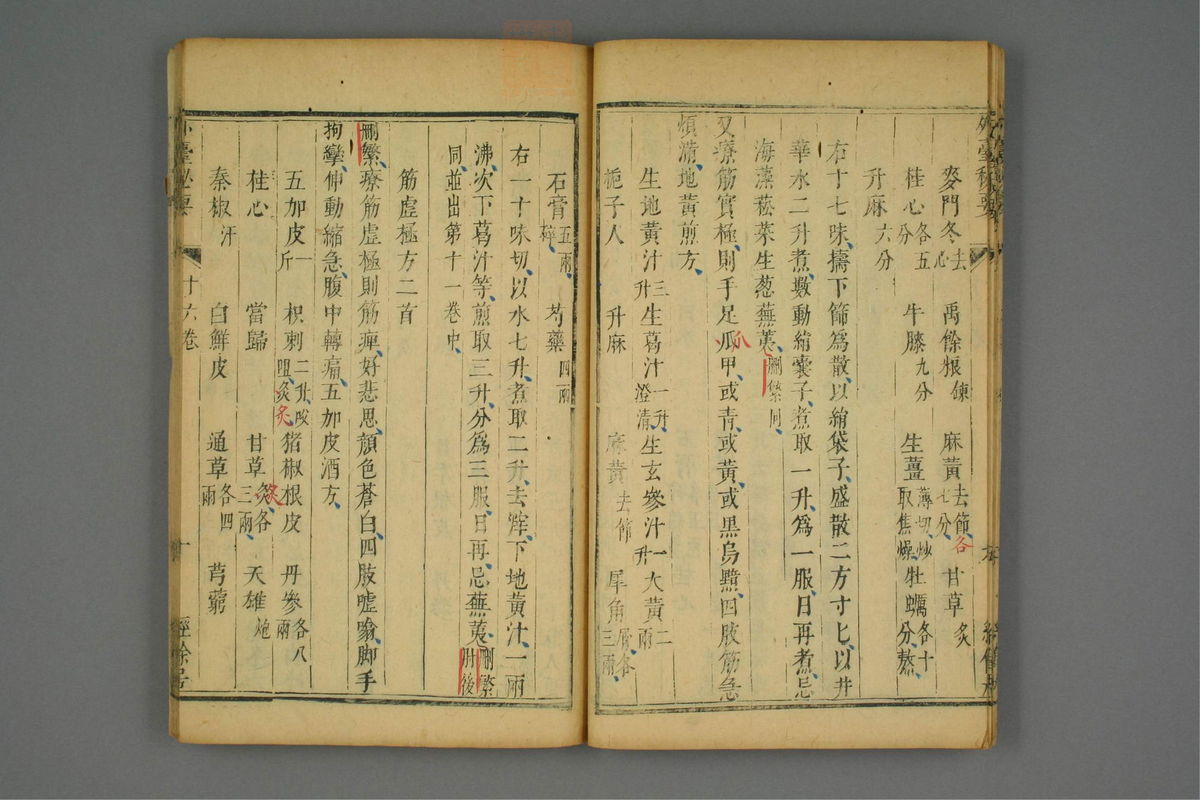 外臺秘要
麥門冬去心 禹餘粮鍊 麻黃去節七分各 甘草炙
桂心各五分 牛膝九分 生薑薄切炒取焦燥 牡蠣各十分熬
升麻六分
右十七味擣下篩爲散以絹袋子盛散二方寸匕以井
華水二升煮數動絹囊子煮取一升爲一服日再煮忌
海藻菘菜生葱蕪荑刪繁同
又療筋實極則手足瓜甲或青或黃或黑烏黯四肢筋急
爪
煩滿地黃煎方
生地黃汁三升 生葛汁一升澄清 生玄參汁一升 大黃二兩
梔子人 升麻 麻黃去節 犀角屑各三兩
石膏五兩碎 芍藥四兩
右一十味切以水七升煮取二升去滓下地黃汁一兩
沸次下葛汁等煎取三升分爲三服日再忌蕪荑刪繁肘後
同並出第十一卷中
筋虛極方二首
刪繁療筋虛極則筋痺好悲思顔色蒼白四肢噓噏脚手
拘攣伸動縮急腹中轉痛五加皮酒方
五加皮一斤 枳刺二升㕮咀炙 猪椒根皮 丹參各八兩
炙
桂心 當歸 甘草炙各三兩 天雄炮
炙
秦椒汗 白鮮皮 通草各四兩 芎藭
臺秘要 十六卷 經餘居